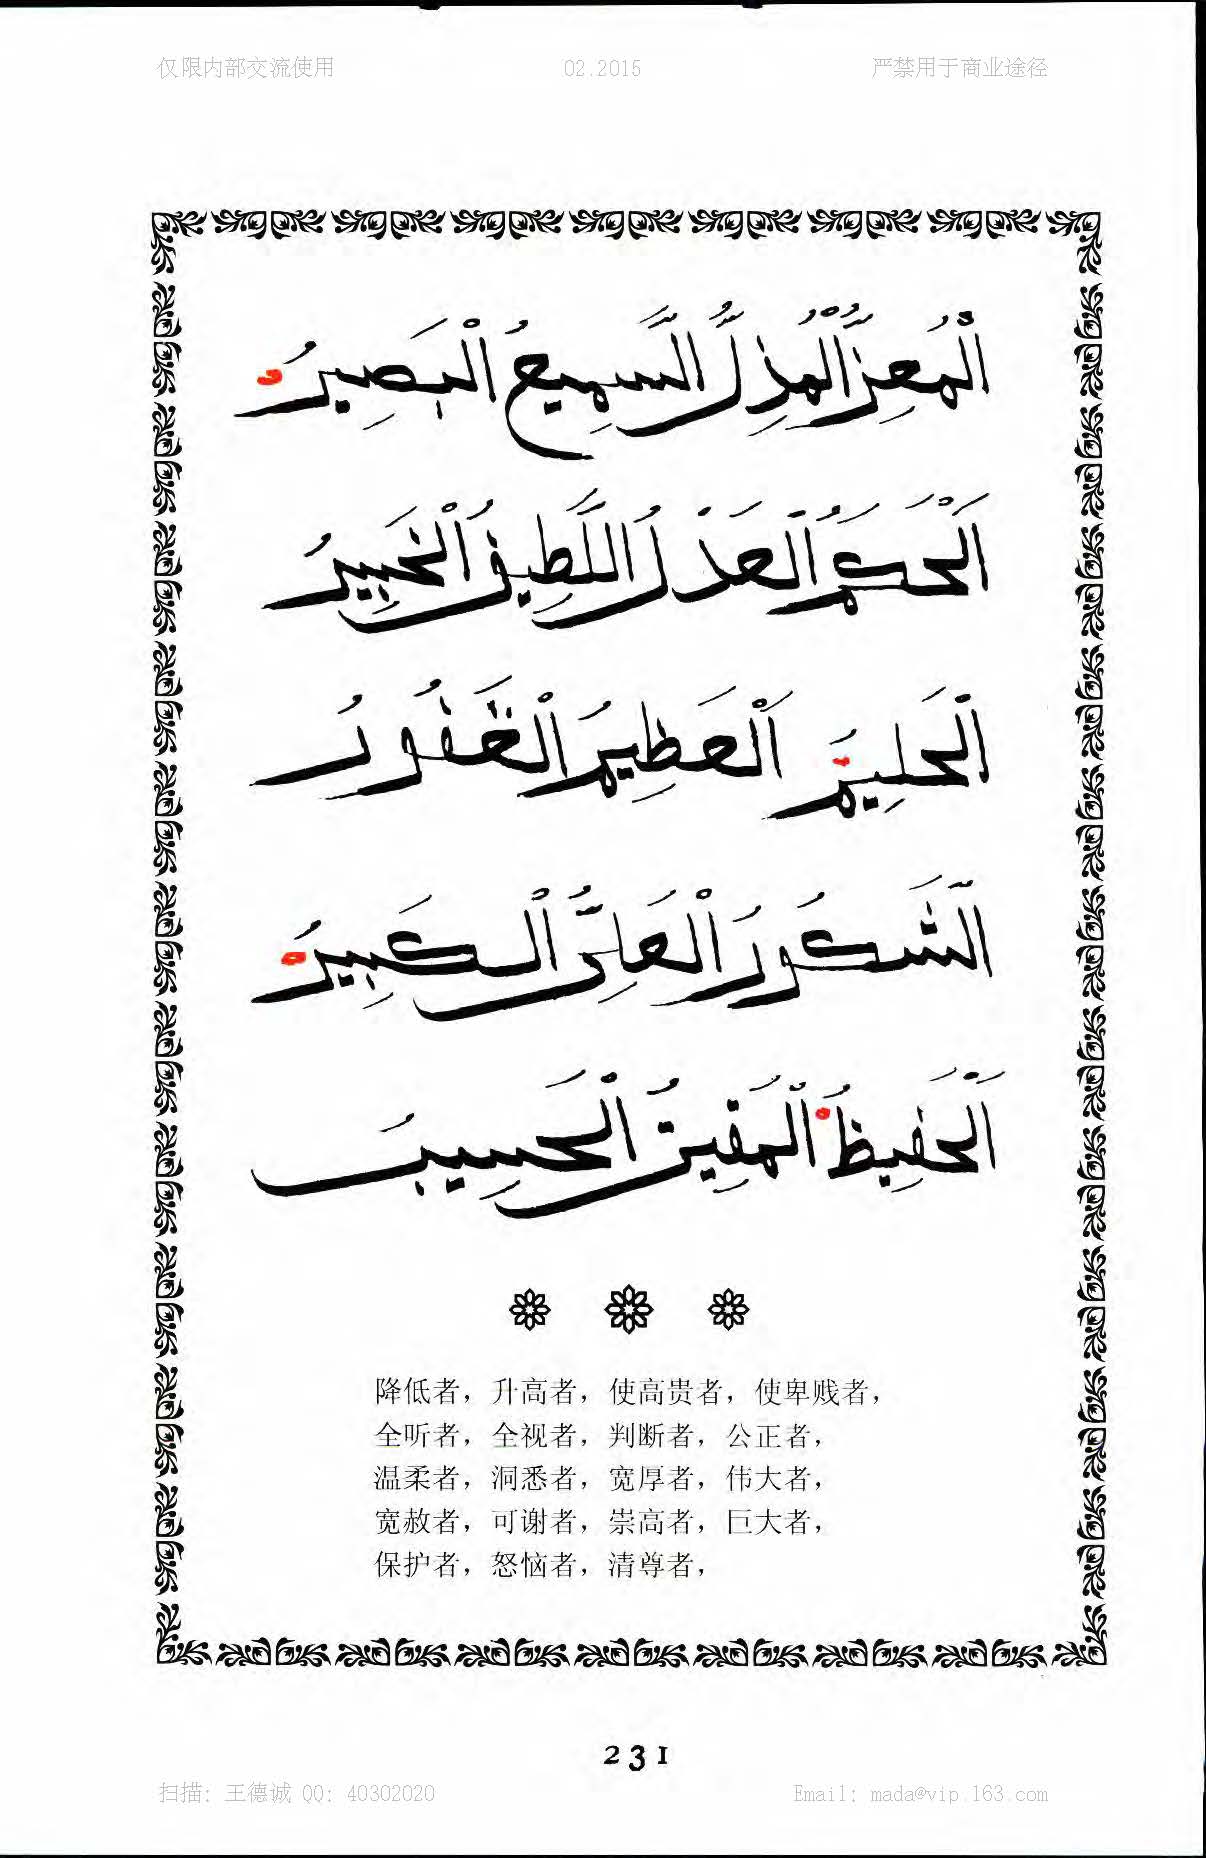 仅限内部交流使用 02.2015 严禁用于商业途径
الْمُعِزُّ الْمُذِلُّ السَّمِيعُ الْبَصِيرُ
اَلْحَكَمُ الْعَدْلُ اللَّطِيفُ الْخَبِيرُ
الْحَلِيمُ اَلْعَظِيمُ الْغَفُورُ
الشَّكُورُ الْعَلِىُّ الْكَبِيرُ
اَلْحَفِيظُ الْمُقِيتُ الْحَسِيبُ
降低者，升高者，使高贵者，使卑贱者，
全听者，全视者，判断者，公正者，
温柔者，洞悉者，宽厚者，伟大者，
宽赦者，可谢者，崇高者，巨大者，
保护者，怒恼者，清尊者，
231
扫描: 王德诚 QQ: 40302020 Email: mada@vip.163.com